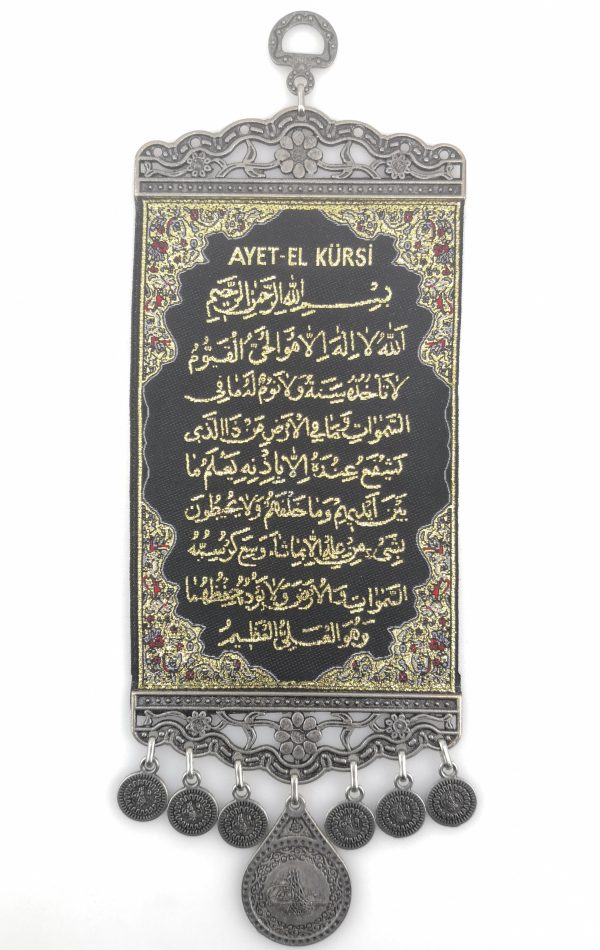 AYET-EL KÜRSİ
بسم الله الرحمن الرحيم
الله لا اله الا هو الحي القيوم
لا تاخذه سنة ولا نوم له ما في
السموات وما في الارض من ذا الذى
يشفع عنده الا باذنه يعلم ما
بين ايديهم وما خلفهم ولا يحيطون
بشىء من علمه الا بما شاء وسع كرسيه
السموات والارض ولا يؤده حفظهما
وهو العلى العظيم